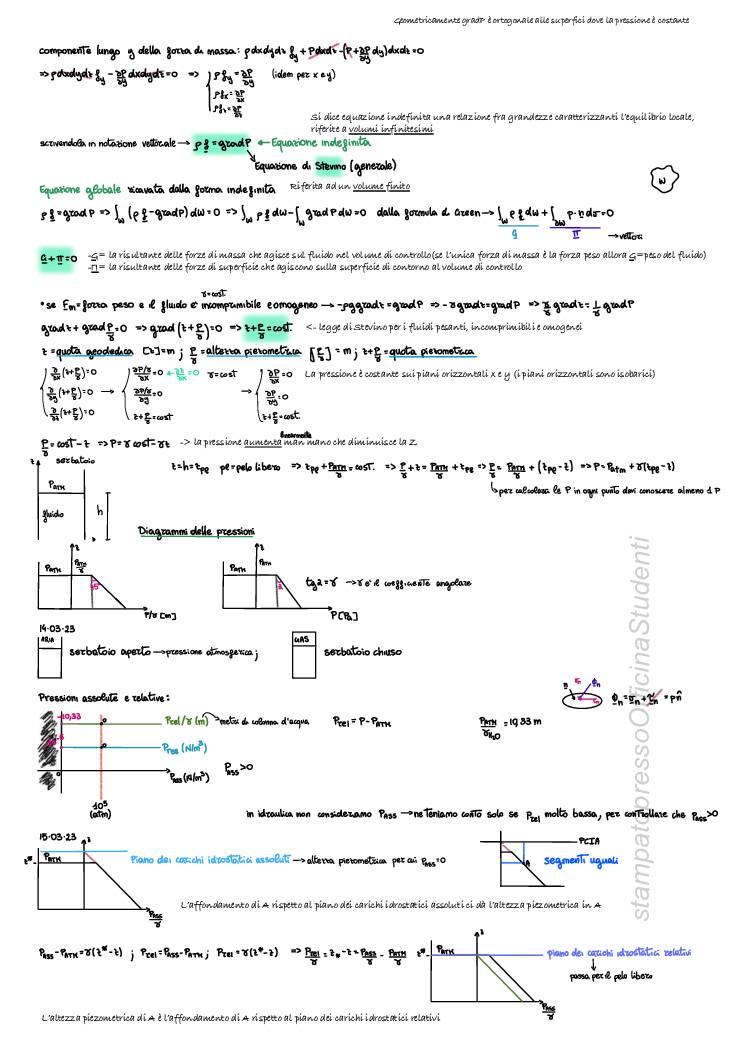 Geometricamente gradP è ortogonale alle superfici dove la pressione è costante
componente lungo y della forza di massa: ρdxdydz f_y + Pdxdz - (P + ∂P/∂y dy)dxdz = 0
=> ρdxdydz f_y - ∂P/∂y dxdydz = 0 => { ρf_y = ∂P/∂y (idem per x e y)
ρf_x = ∂P/∂x
ρf_z = ∂P/∂z
Si dice equazione indefinita una relazione fra grandezze caratterizzanti l'equilibrio locale,
riferite a volumi infinitesimi
scrivendola in notazione vettoriale → ρf = gradP ← Equazione indefinita
Equazione di Stevino (generale)
Equazione globale ricavata dalla forma indefinita Riferita ad un volume finito
W
ρf = grad P => ∫_W (ρf - gradP) dW = 0 => ∫_W ρf dW - ∫_W grad P dW = 0 dalla formula di Green → ∫_W ρf dW + ∫_∂W p·n dσ = 0
G Π → vettori
G + Π = 0 -G = la risultante delle forze di massa che agisce sul fluido nel volume di controllo(se l'unica forza di massa è la forza peso allora G=peso del fluido)
-Π = la risultante delle forze di superficie che agiscono sulla superficie di contorno al volume di controllo
γ=cost
*se Em = forza peso e il fluido è incomprimibile e omogeneo → -ρg gradz = gradP => -γ gradz = gradP => γ/γ gradz = 1/γ gradP
gradz + grad P/γ = 0 => grad(z + P/γ) = 0 => z + P/γ = cost. <- legge di Stevino per i fluidi pesanti, incomprimibili e omogenei
z = quota geodedica [z] = m ; P/γ = altezza piezometrica [P/γ] = m ; z + P/γ = quota piezometrica
{ ∂/∂x (z+P/γ) = 0 { ∂P/γ/∂x + ∂z/∂x = 0 γ=cost { ∂P/∂x = 0 La pressione è costante sui piani orizzontali x e y (i piani orizzontali sono isobarici)
∂/∂y (z+P/γ) = 0 → ∂P/γ/∂y → ∂P/∂y = 0
∂/∂z (z+P/γ) = 0 z+P/γ = cost z+P/γ = cost.
linearmente
P/γ = cost - z => P = γ cost - γz -> la pressione aumenta man mano che diminuisce la Z
z serbatoio
z=h=z_PL pl = pelo libero => z_PL + P_ATM/γ = cost. => P/γ + z = P_ATM/γ + z_PL => P/γ = P_ATM/γ + (z_PL - z) => P = P_atm + γ(z_PL - z)
P_ATM
per calcolare le P in ogni punto devi conoscere almeno 1 P
fluido
h
Diagrammi delle pressioni
z z
P_ATM P_ATM/γ P_ATM P_ATM
45° α tgα = γ → γ è il coefficiente angolare
P/γ [m] P[Pa]
14-03-23
ARIA serbatoio aperto → pressione atmosferica; GAS serbatoio chiuso
Pressioni assolute e relative:
-10,33 P_rel/γ (m) → metri di colonna d'acqua P_rel = P - P_ATM P_ATM/γ_H2O = 10,33 m
P_rel (N/m³)
0 P_ASS (N/m³) P_ASS > 0
10⁵
(atm)
in idraulica non consideriamo P_ASS → ne teniamo conto solo se P_rel molto bassa, per controllare che P_ASS > 0
15-03-23
z
z* Piano dei carichi idrostatici assoluti → altezza piezometrica per cui P_ASS = 0
P_ATM
PCIA
A segmenti uguali
P_ASS/γ
L'affondamento di A rispetto al piano dei carichi idrostatici assoluti ci dà l'altezza piezometrica in A
P_ASS - P_ATM = γ(z* - z) ; P_rel = P_ASS - P_ATM ; P_rel = γ(z* - z) => P_rel/γ = z* - z = P_ASS/γ - P_ATM/γ
z
z* P_ATM piano dei carichi idrostatici relativi
passa per il pelo libero
P_ASS/γ
L'altezza piezometrica di A è l'affondamento di A rispetto al piano dei carichi idrostatici relativi
stampatopressoOfficinaStudenti